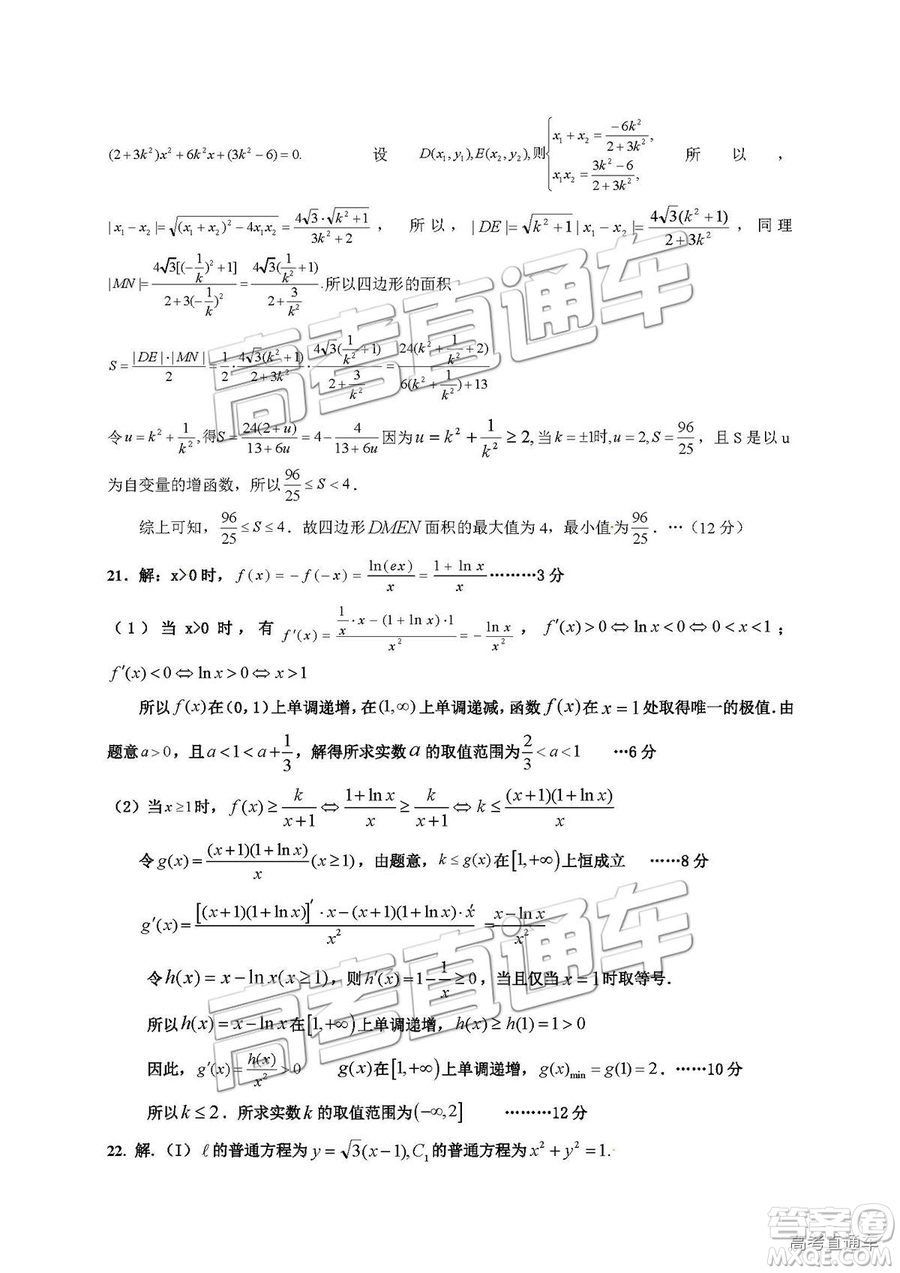 (2+3k²)x²+6k²x+(3k²-6)=0. 设 D(x₁,y₁),E(x₂,y₂),则{x₁+x₂=\frac{-6k²}{2+3k²}, x₁x₂=\frac{3k²-6}{2+3k²}, 所以，
|x₁-x₂|=\sqrt{(x₁+x₂)²-4x₁x₂}=\frac{4\sqrt{3}·\sqrt{k²+1}}{3k²+2}， 所以，|DE|=\sqrt{k²+1}|x₁-x₂|=\frac{4\sqrt{3}(k²+1)}{2+3k²}，同理
|MN|=\frac{4\sqrt{3}[(-\frac{1}{k})²+1]}{2+3(-\frac{1}{k})²}=\frac{4\sqrt{3}(\frac{1}{k²}+1)}{2+\frac{3}{k²}}.所以四边形的面积
S=\frac{|DE|·|MN|}{2}=\frac{1}{2}·\frac{4\sqrt{3}(k²+1)}{2+3k²}·\frac{4\sqrt{3}(\frac{1}{k²}+1)}{2+\frac{3}{k²}}=\frac{24(k²+\frac{1}{k²}+2)}{6(k²+\frac{1}{k²})+13}
令u=k²+\frac{1}{k²},得S=\frac{24(2+u)}{13+6u}=4-\frac{4}{13+6u}因为u=k²+\frac{1}{k²}≥2,当k=±1时,u=2,S=\frac{96}{25}，且S是以u
为自变量的增函数，所以\frac{96}{25}≤S<4．
综上可知，\frac{96}{25}≤S≤4．故四边形DMEN面积的最大值为4，最小值为\frac{96}{25}．…（12分）
21．解：x>0时，f(x)=-f(-x)=\frac{ln(ex)}{x}=\frac{1+ln x}{x}………3分
（1）当x>0时，有f′(x)=\frac{\frac{1}{x}·x-(1+ln x)·1}{x²}=-\frac{ln x}{x²}，f′(x)>0⇔ln x<0⇔0<x<1；
f′(x)<0⇔ln x>0⇔x>1
所以f(x)在(0,1)上单调递增，在(1,∞)上单调递减，函数f(x)在x=1处取得唯一的极值．由
题意a>0，且a<1<a+\frac{1}{3}，解得所求实数a的取值范围为\frac{2}{3}<a<1 …6分
（2）当x≥1时，f(x)≥\frac{k}{x+1}⇔\frac{1+ln x}{x}≥\frac{k}{x+1}⇔k≤\frac{(x+1)(1+ln x)}{x}
令g(x)=\frac{(x+1)(1+ln x)}{x}(x≥1)，由题意，k≤g(x)在[1,+∞)上恒成立 ……8分
g′(x)=\frac{[(x+1)(1+ln x)]′·x-(x+1)(1+ln x)·x′}{x²}=\frac{x-ln x}{x²}
令h(x)=x-ln x(x≥1)，则h′(x)=1-\frac{1}{x}≥0，当且仅当x=1时取等号．
所以h(x)=x-ln x在[1,+∞)上单调递增，h(x)≥h(1)=1>0
因此，g′(x)=\frac{h(x)}{x²}>0 g(x)在[1,+∞)上单调递增，g(x)_{min}=g(1)=2．……10分
所以k≤2．所求实数k的取值范围为(-∞,2] ………12分
22. 解．（I）ℓ的普通方程为y=\sqrt{3}(x-1),C₁的普通方程为x²+y²=1.
高考直通车
高考直通车
答案卷
高考直通车
MXQE.COM